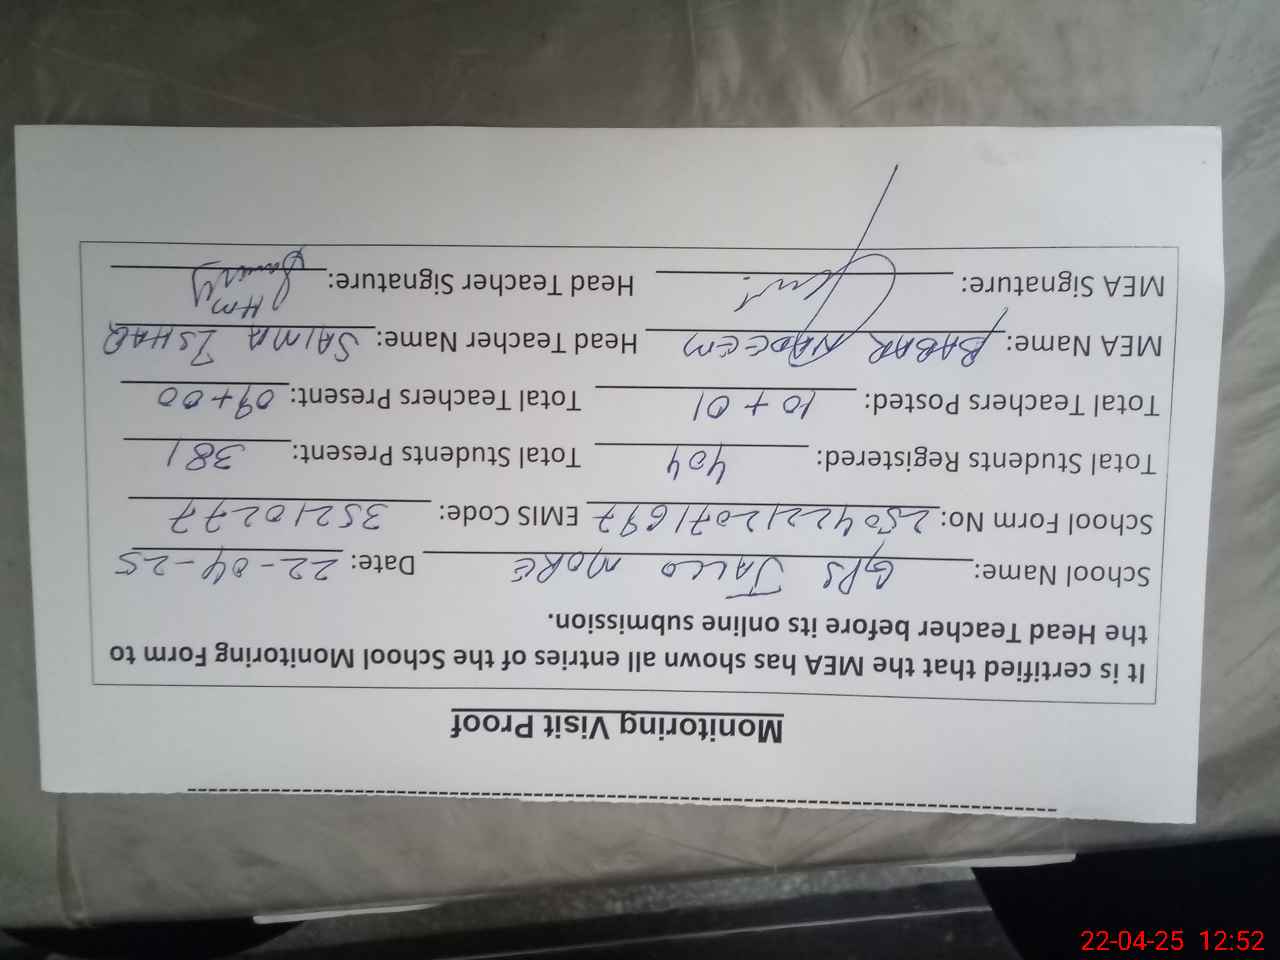 Monitoring Visit Proof
It is certified that the MEA has shown all entries of the School Monitoring Form to
the Head Teacher before its online submission.
School Name: GPS JALLO MORE Date: 22-04-25
School Form No: 25042212071697 EMIS Code: 35210277
Total Students Registered: 404 Total Students Present: 381
Total Teachers Posted: 10+01 Total Teachers Present: 09+00
MEA Name: BABAR NADEEM Head Teacher Name: SAIMA ISHAQ
MEA Signature: Head Teacher Signature: HM
22-04-25 12:52